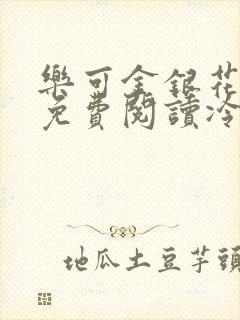 樂可金銀花
免費閱讀冷
地瓜土豆芋頭